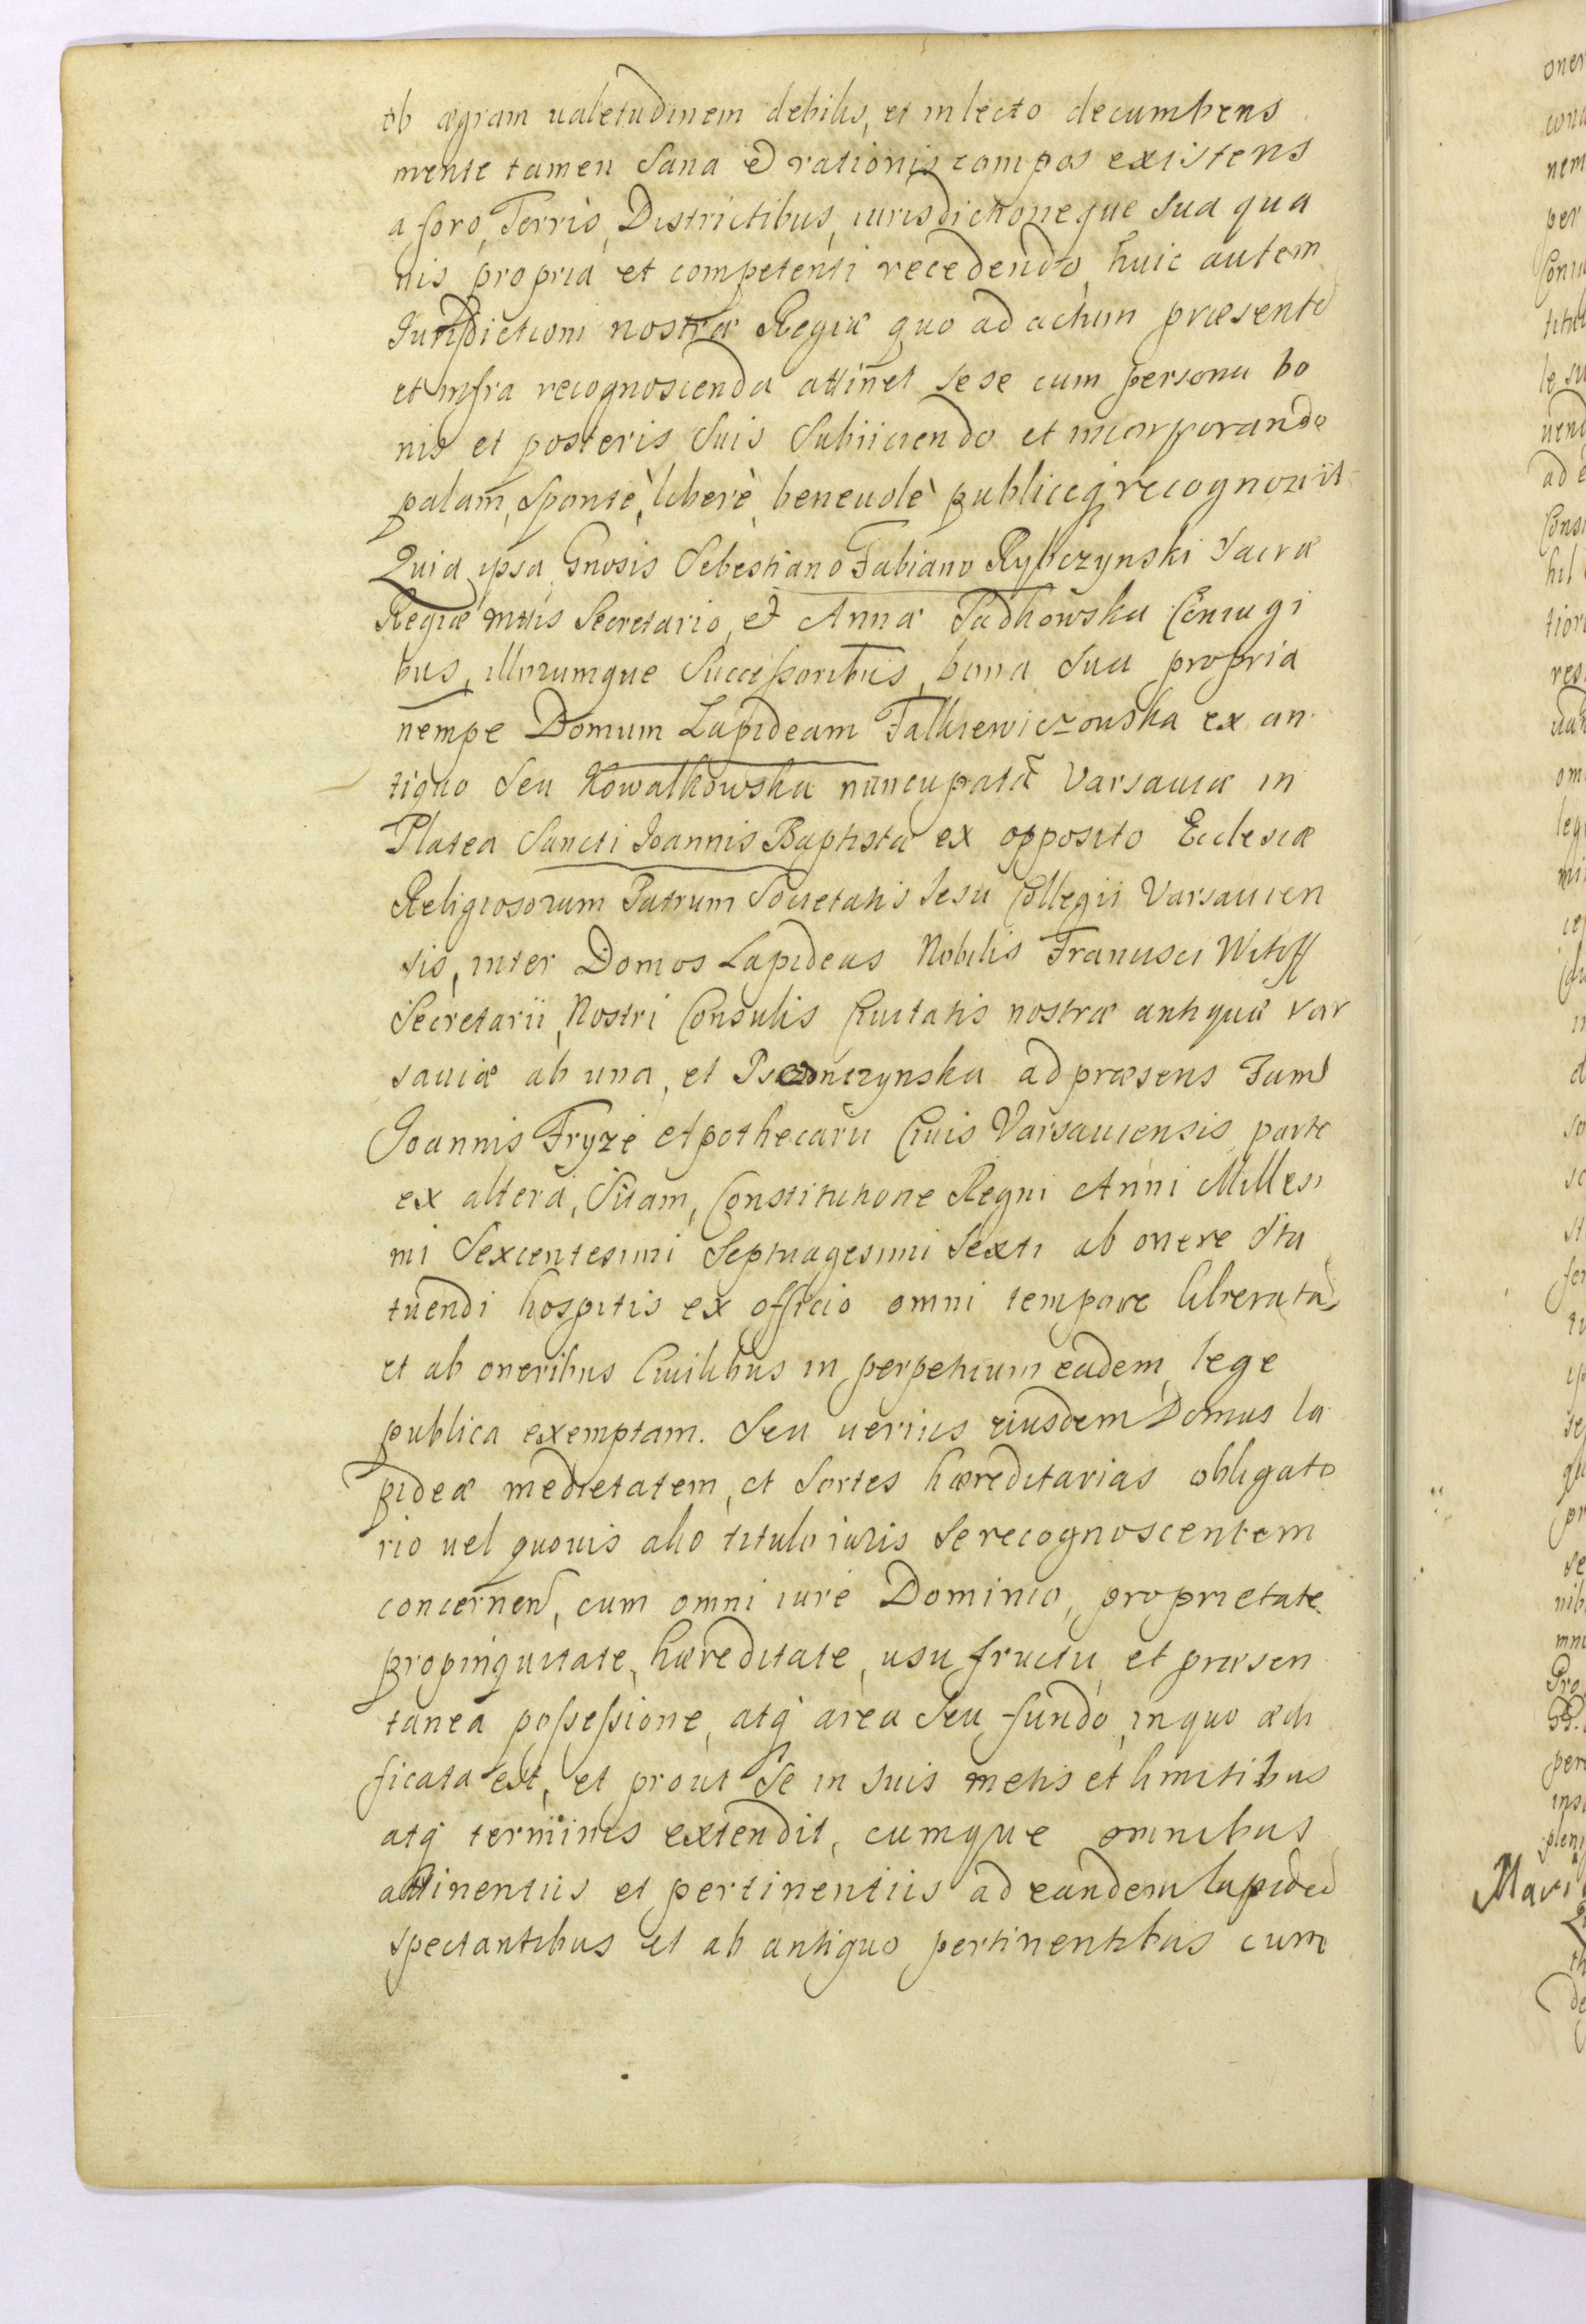 ob ægram ualetudinem debilis, et in lecto decumbens
mente tamen Sana et rationis compos existens
a foro, Terris, Districtibus, iurisdictioneque sua qua
nis propria et competenti recedendo, huic autem
Jurisdictioni nostræ Regiæ quo ad actum præsentẽ
et infra recognoscenda attinet sese cum persona bo
nis et posteris Suis Subiiciendo et incorporando
palam, Sponte, liberè, beneuolè publiceq̃ recognouit
Quia ipsa Gnosis Sebestiano Fabiano Rybczynski Sacræ
Regiæ Mttis Secretario, et Annæ Padkowska Coniugi
bus, illorumque Successoribus, bona Sua propria
nempe Domum Lapideam Falkiewiczowska ex an
tiquo Seu Kowalkowska nuncupatã Varsauiæ in
Platea Sancti Joannis Baptistæ ex opposito Ecclesiæ
Religiosorum Patrum Societatis Iesu Collegii Varsauien
sis, inter Domos Lapideas Nobilis Francisci Witoff
Secretarii Nostri Consulis Ciuitatis nostræ antiquæ Var
sauiæ ab una, et adpræsens Fam̃
Joannis Fryze Apothecarii Ciuis Varsauiensis parte
ex altera, Sitam, Constitutione Regni Anni Millesi
mi Sexcentesimi Septuagesimi Sexti ab onere Sta
tuendi hospitis ex officio omni tempore liberatã
et ab oneribus Ciuilibus in perpetuum eadem lege
publica exemptam. Seu uerius eiusdem Domus la
pideæ medietatem, et Sortes hæreditarias obligato
rio uel quouis alio titulo iuris Se recognoscentem
concerneñ, cum omni iure Dominio, proprietate
propinquitate, hæreditate, usu fructu et præsen
tanea possessione, atq̃ area Seu fundo in quo ædi
ficata est, et prout Se in suis metis et limitibus
atq̃ terminis extendit, cumque omnibus
attinentiis et pertinentiis ad eandem lapideã
spectantibus et ab antiquo pertinentibus cum